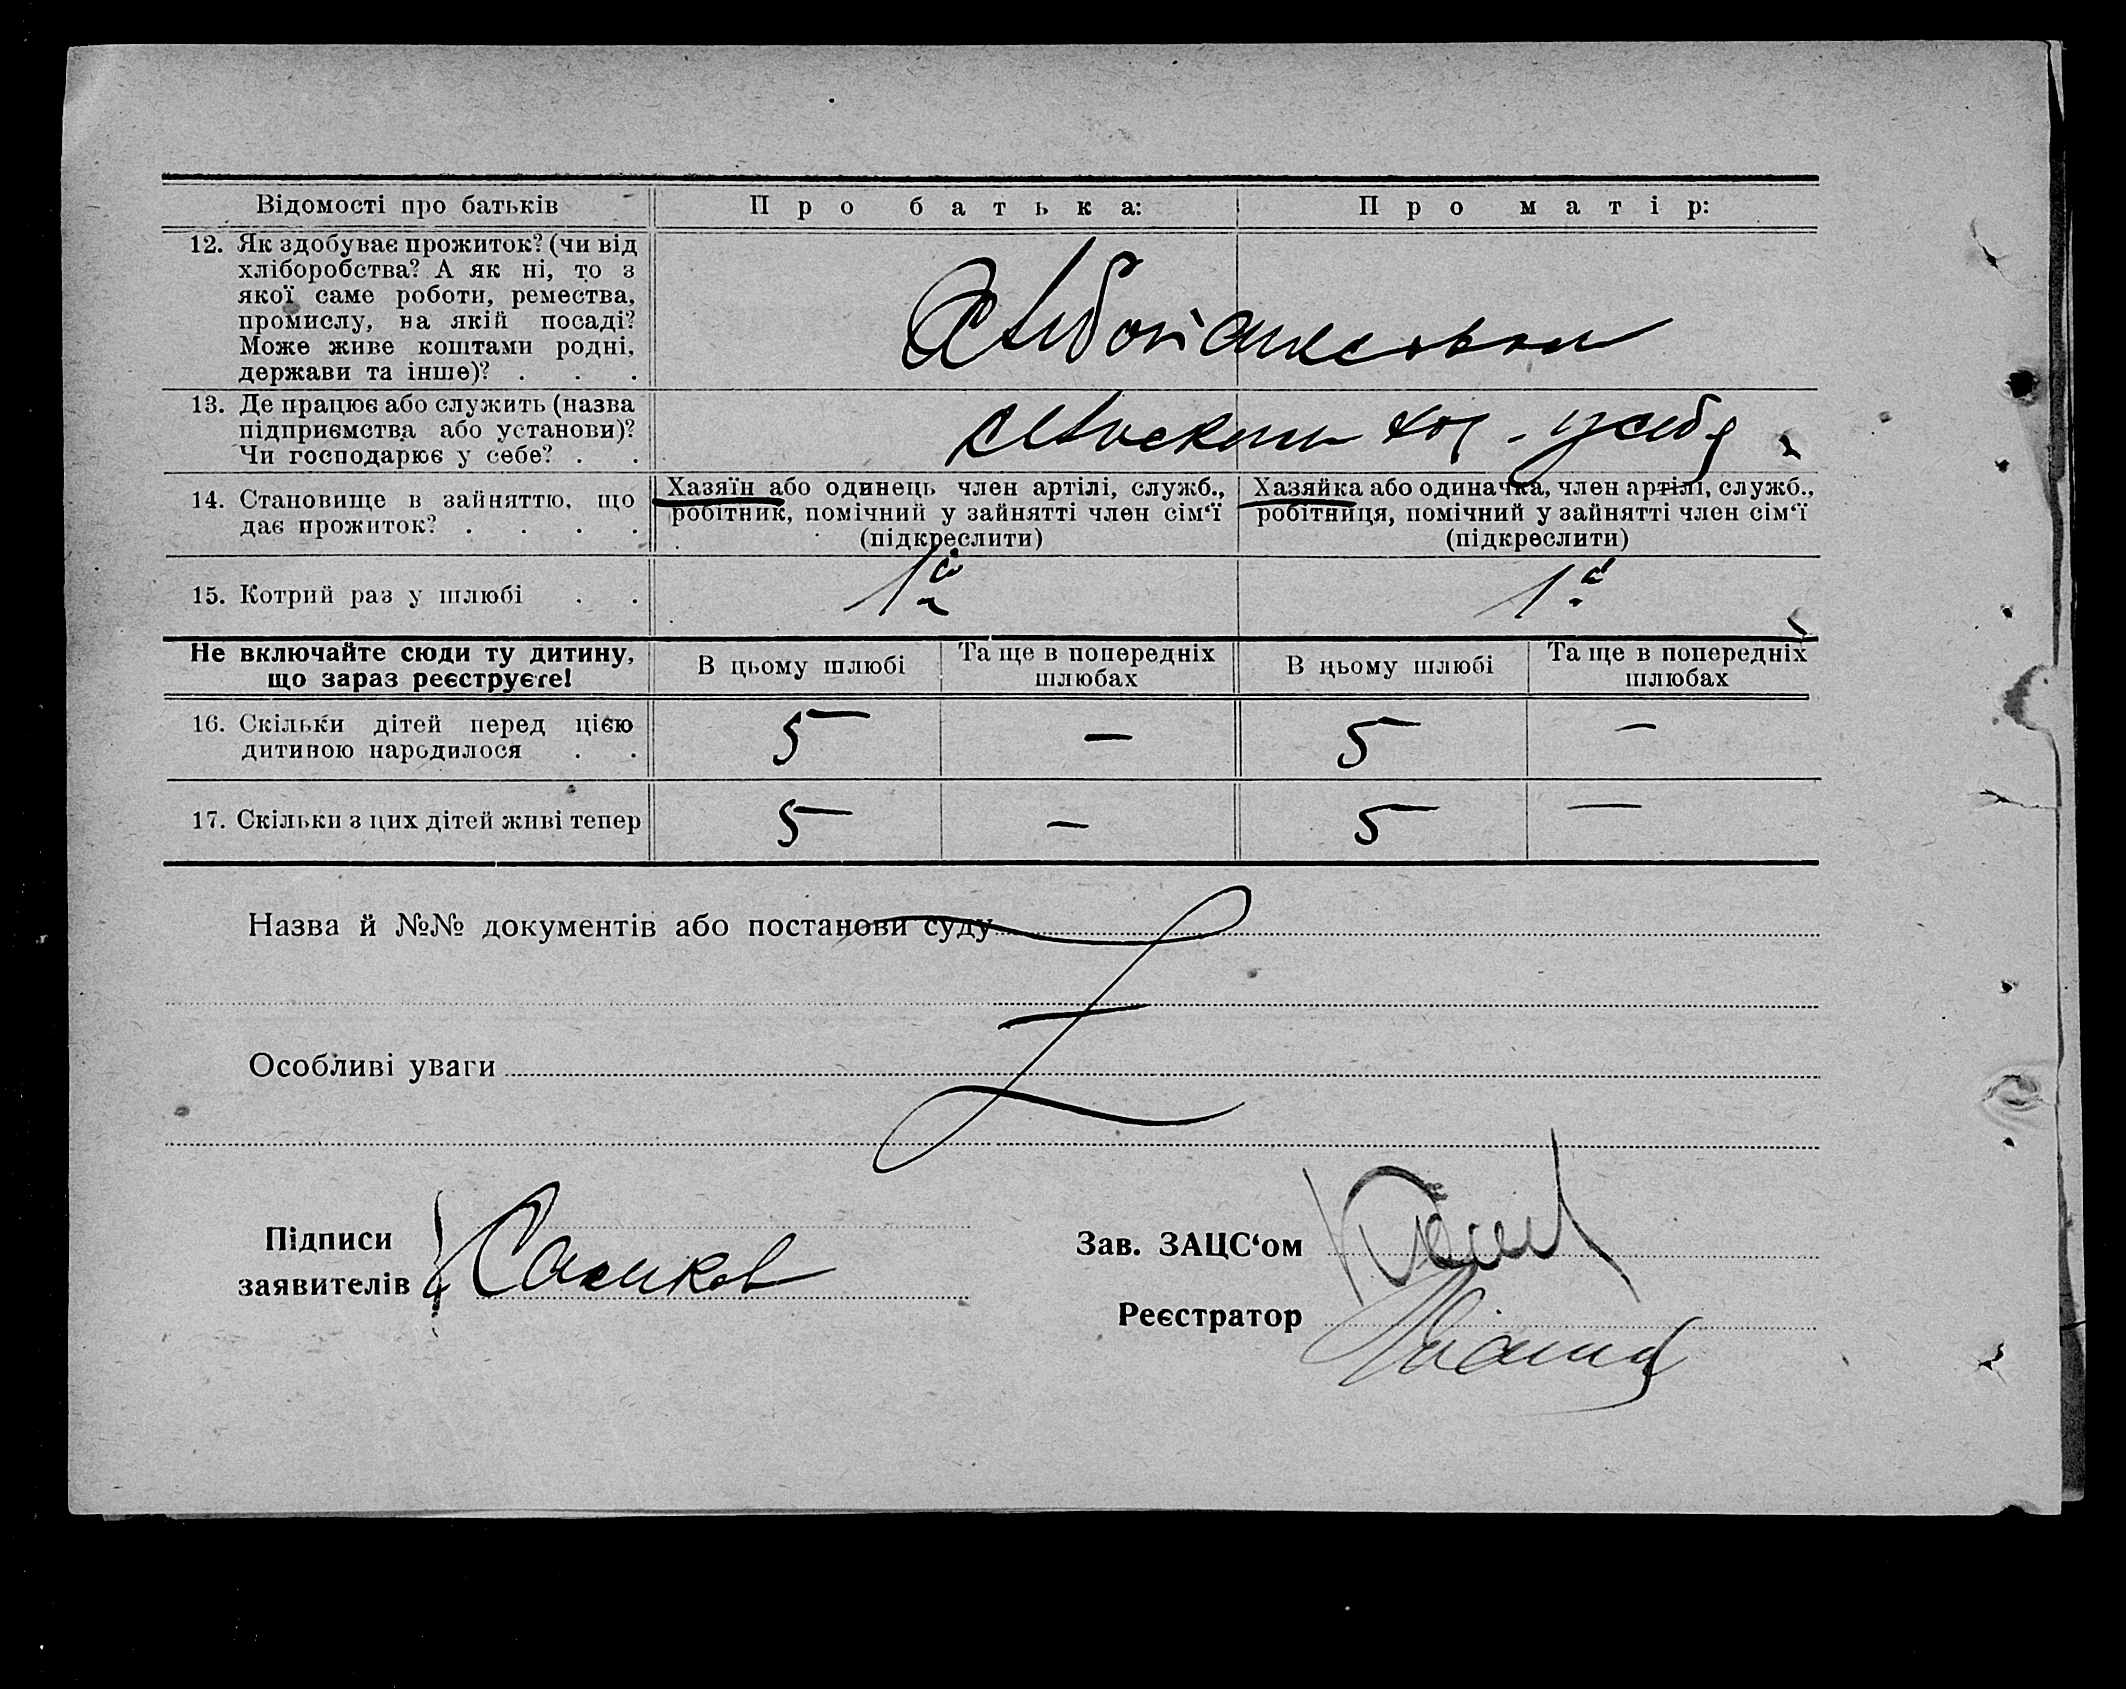 Відомості про батьків
Про батька:
Про матір:
12. Як здобуває прожиток? (чи від
хліборобства? А як ні, то з
якої саме роботи, ремества,
промислу, на якій посаді?
Може живе коштами родні,
держави та інше)? . . .
13. Де працює або служить (назва
підприємства або установи)?
Чи господарює у себе? . .
14. Становище в зайняттю, що
дає прожиток? . . . .
Хазяїн або одинець член артілі, служб.,
робітник, помічний у зайнятті член сім‘ї
(підкреслити)
Хазяйка або одиначка, член артілі, служб.,
робітниця, помічний у зайнятті член сім‘ї
(підкреслити)
15. Котрий раз у шлюбі . .
1й
1й
Не включайте сюди ту дитину,
що зараз реєструєте!
В цьому шлюбі
Та ще в попередніх
шлюбах
В цьому шлюбі
Та ще в попередніх
шлюбах
16. Скільки дітей перед цією
дитиною народилося . .
5 — 5 —
17. Скільки з цих дітей живі тепер
5 — 5 —
Назва й №№ документів або постанови суду
Особливі уваги
Підписи
заявителів
Зав. ЗАЦС‘ом
Реєстратор